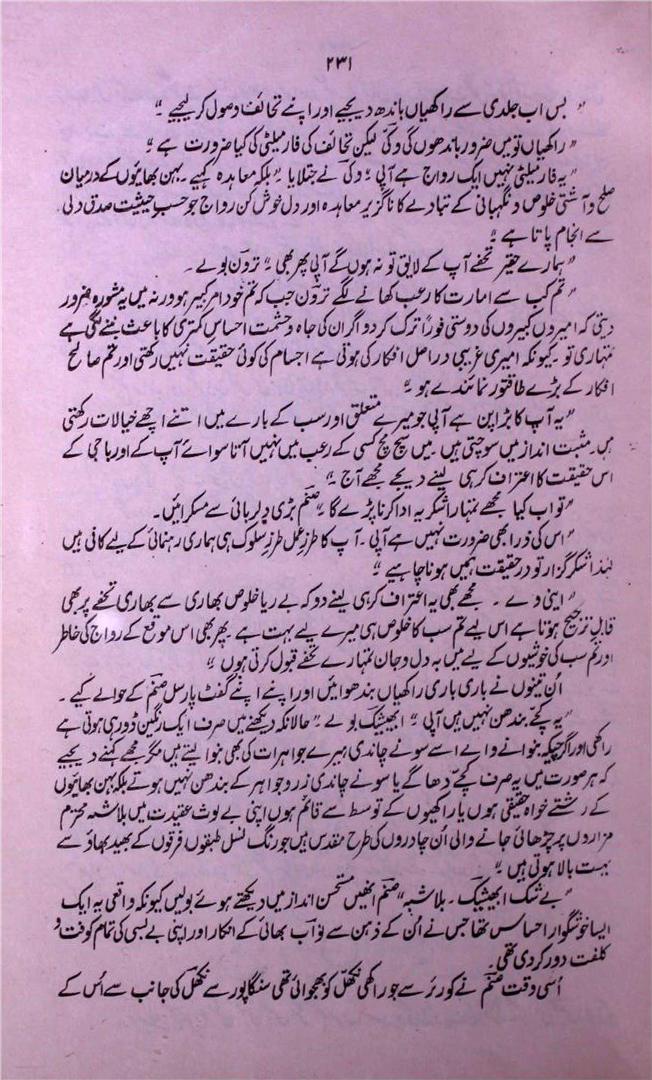 ۲۳۱
" بس اب جلدی سے راکھیاں باندھ دیجیے اور اپنے تحائف وصول کر لیجیے ۔"
" راکھیاں تو میں ضرور باندھوں گی وِکی لیکن تحائف کی فارمیلٹی کی کیا ضرورت ہے ؟"
" یہ فارمیلٹی نہیں ایک رواج ہے آپی " وِکی نے جتلایا " بلکہ معاہدہ کہیے ۔ بہن بھائیوں کے درمیان
صلح و آشتی خلوص و نگہبانی کے تبادلے کا ناگزیر معاہدہ اور دل خوش کن رواج جو حسب حیثیت صدق دلی
سے انجام پاتا ہے "
" ہمارے حقیر تحفے آپ کے لایق تو نہ ہوں گے آپی پھر بھی " ترون بولے ۔
" تم کب سے امارت کا رعب کھانے لگے ترون جب کہ تم خود امیر کبیر ہو ورنہ میں یہ مشورہ ضرور
دیتی کہ امیروں کبیروں کی دوستی فوراً ترک کر دو اگر ان کی جاہ و حشمت احساس کمتری کا باعث بننے لگی ہے
تمہاری تو ۔ کیونکہ امیری غریبی دراصل افکار کی ہوتی ہے اجسام کی کوئی حقیقت نہیں رکھتی اور تم صالح
افکار کے بڑے طاقتور نمائندے ہو "
" یہ آپ کا بڑاپن ہے آپی جو میرے متعلق اور سب کے بارے میں اتنے اچھے خیالات رکھتی
ہیں ۔ مثبت انداز میں سوچتی ہیں ۔ میں سچ مچ کسی کے رعب میں نہیں آتا سوائے آپ کے اور باجی کے
اس حقیقت کا اعتراف کر ہی لینے دیجے مجھے آج ۔"
" تو اب کیا مجھے تمہارا شکریہ ادا کرنا پڑے گا " صنم بڑی دلربائی سے مسکرائیں ۔
" اس کی ذرا بھی ضرورت نہیں ہے آپی ۔ آپ کا طرزِ عمل طرزِ سلوک ہی ہماری رہنمائی کے لیے کافی ہیں
لہٰذا شکر گزار تو درحقیقت ہمیں ہونا چاہیے "
" اینی وے ۔ مجھے بھی یہ اعتراف کر ہی لینے دو کہ بے ریا خلوص بھاری سے بھاری تحفے پر بھی
قابلِ ترجیح ہوتا ہے اس لیے تم سب کا خلوص ہی میرے لیے بہت ہے ۔ پھر بھی اس موقع کے رواج کی خاطر
اور تم سب کی خوشیوں کے لیے میں بہ دل و جان تمہارے تحفے قبول کرتی ہوں "
اُن تینوں نے باری باری راکھیاں بندھوائیں اور اپنے اپنے گفٹ پارسل صنم کے حوالے کیے ۔
" یہ کچے بندھن نہیں ہیں آپی " ابھیشیک بولے " حالانکہ دیکھنے میں صرف ایک رنگین ڈور ہی ہوتی ہے
راکھی اور اگرچیکہ بنوانے والے اسے سونے چاندی ہیرے جواہرات کی بھی بنوا لیتے ہیں مگر مجھے کہنے دیجیے
کہ ہر صورت میں یہ صرف کچے دھاگے یا سونے چاندی زر و جواہر کے بندھن نہیں ہوتے بلکہ بہن بھائیوں
کے رشتے خواہ حقیقی ہوں یا راکھیوں کے توسط سے قائم ہوں اپنی بے لوث عقیدت میں بلاشبہ محترم
مزاروں پر چڑھائی جانے والی اُن چادروں کی طرح مقدس ہیں جو رنگ نسل طبقوں، فرقوں کے بھید بھاؤ سے
بہت بالا ہوتی ہیں "
" بے شک ابھیشیک ۔ بلاشبہ " صنم انھیں مستحسن انداز میں دیکھتے ہوئے بولیں کیونکہ واقعی یہ ایک
ایسا خوشگوار احساس تھا جس نے اُن کے ذہن سے نواب بھائی کے انکار اور اپنی بے بسی کی تمام کوفت و
کلفت دور کر دی تھی ۔
اُسی وقت صنم نے کورئر سے جو راکھی نکھل کو بھجوائی تھی سنگاپور سے نکھل کی جانب سے اُس کے